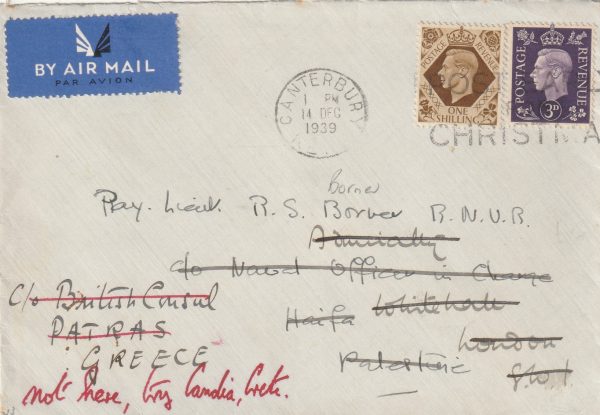 BY AIR MAIL
PAR AVION
CANTERBURY
1 PM
14 DEC
1939
POSTAGE REVENUE
ONE SHILLING
POSTAGE REVENUE
3D
CHRISTMA
Borner
Pay. Lieut. R. S. Borner R.N.V.R.
Admiralty
c/o Naval Officer in Charge
Haifa Whitehall
Palestine London
S.W.1.
C/o British Consul
PATRAS
GREECE
not here, try Candia, Crete.